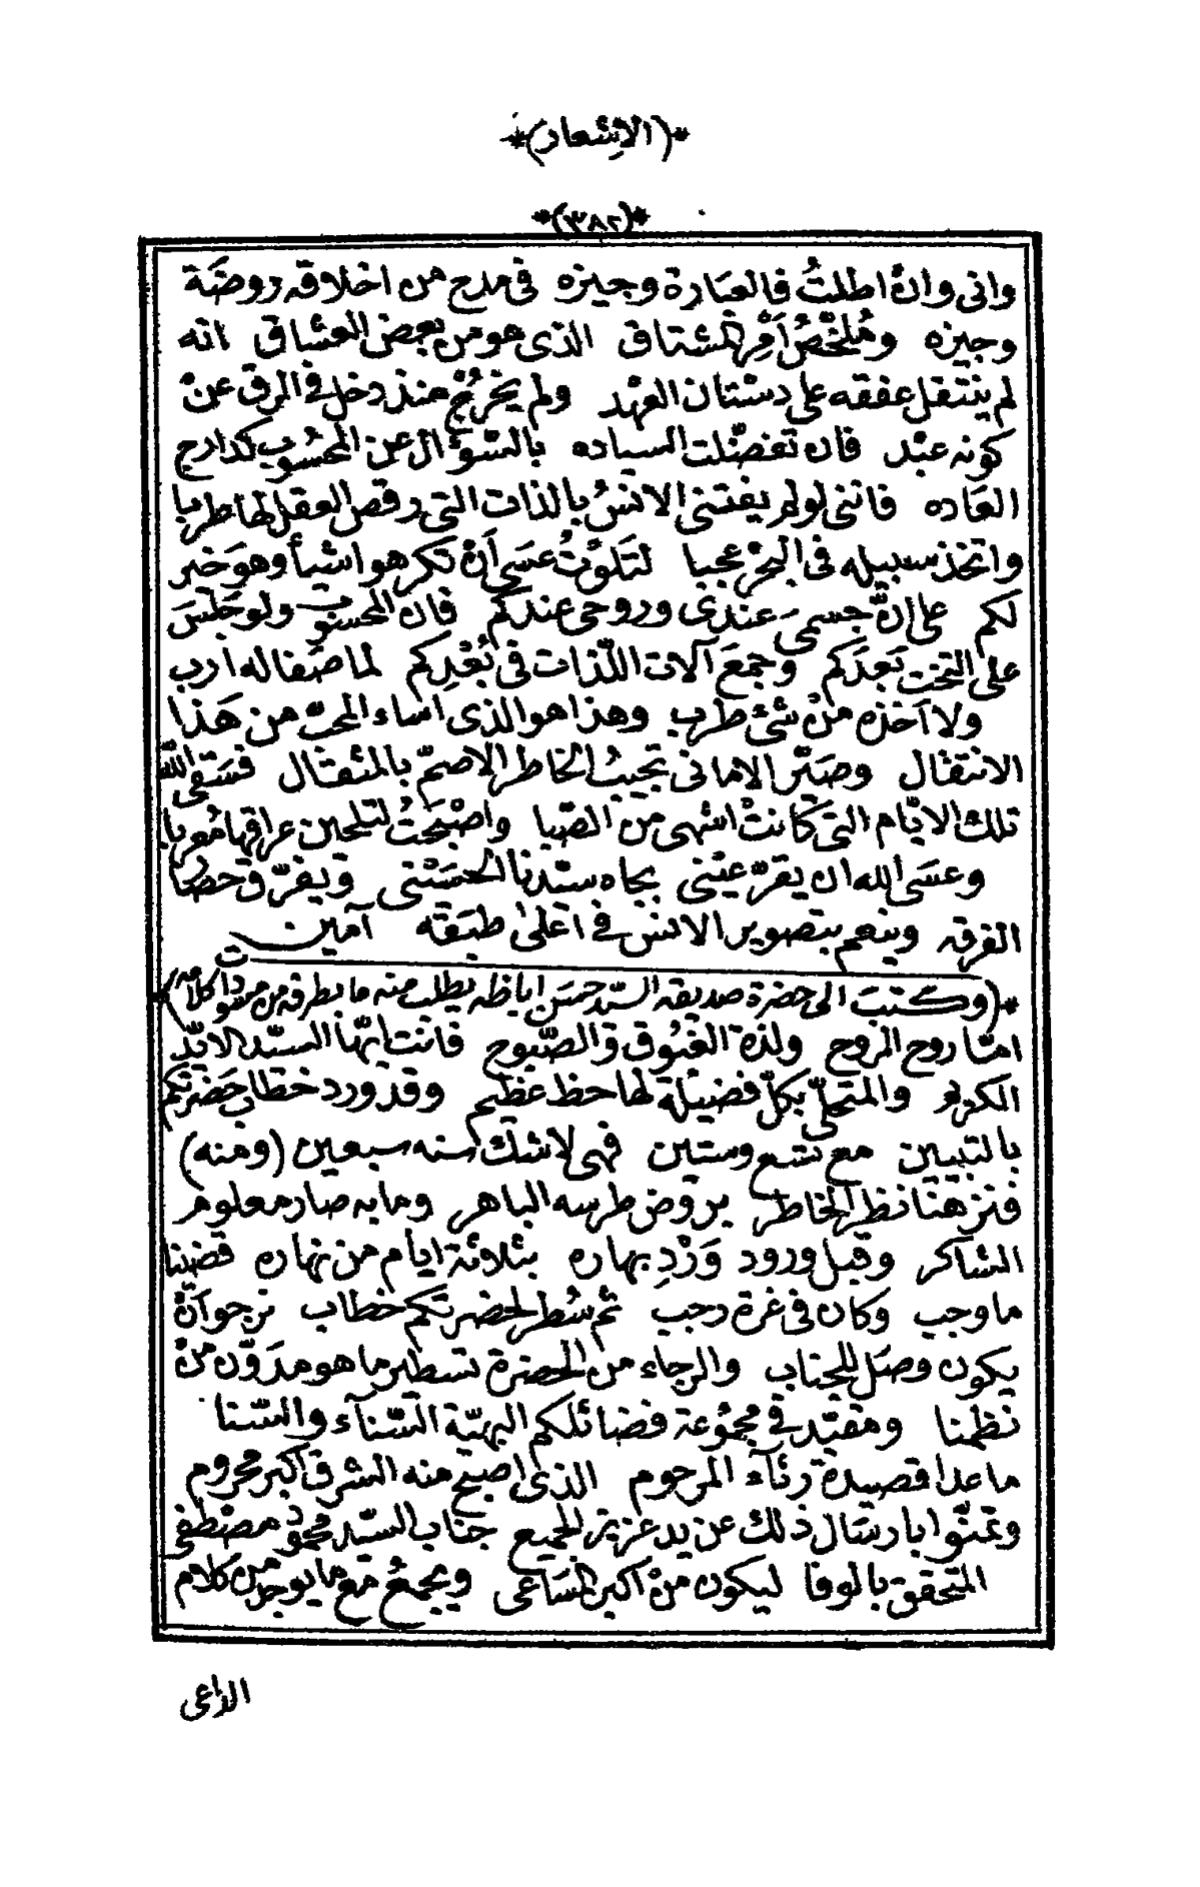 *(الاشعار)*
*(٣٨٢)*
وانى وانْ اطلتُ فالعبارة وجيزه فى مدح من اخلاقه روضة
وجيزه ومُلَخَّصُ اَمْرِ المشتاق الذى هو من بعض العشاق انه
لم ينتقل عفقه على دستان العهد ولم يخرُجْ منذ دخل فى الرق عنْ
كونه عبْد فان تفضّلت السياده بالسّؤال عن المحسُوب كدارج
العَاده فاننى لو لم يفتنى الانسُ بالذات التى رقص العقل لها طربا
واتخذ سبيله فى البحْر عجبا لتَلَوْتُ عسَى اَنْ تكرهوا شيأ وهوَ خير
لكم على انّ جسمىَ عندى وروحى عندكم فان المحسوب ولو جلسَ
على التخت بَعدَكم وجمعَ آلات اللّذات فى بُعْدِكم لما صَفا له ارب
ولا اَخذه منْ شئ طرب وهذا هو الذى اساء المحبّ من هَذا
الانتقال وصيّر الامانى تجيبُ الخاطر الاصمّ بالمثقال فسَقى الله
تلك الايّام التى كانتْ اشهى من الصّبا واصْبَحَتْ لتلحين عراقها مُعربا
وعسَى الله ان يقرّ عيْنى بجاه سيّدنا الحسَيْنى ويفرّق حصار
الفرقه وينعم بتصوير الانس فى اعلى طبَقه آمين
*(وكتبَ الى حضرة صديقه السّيد حسَن اباظه يطلب منه ما بطرفه من مسَودات كلامه)*
امّا روح الروح ولذة الغبُوق والصّبوح فانت ايّها السيّد الايّد
الكريم والمتحلّى بكلّ فضيلة لها حظ عظيم وقد ورد خطاب حضرتكم
بالتبيين مع تسْع وستين فهى لاشك سنه سبعين (ومنه)
فنزهنا نظر الخاطر بروْض طرسه الباهر وما به صار معلوم
الشاكر وقبل ورود وَرْدِ بهاره بثلاثة ايام من نهاره قضينا
ما وجب وكان فى غرة رجب ثم سُطر لحضرتكم خطاب نرجو اَنّْ
يكون وصَل للجناب والرجاء من الحضرة تسطير ما هو مدَوّن منْ
نظمنا ومقيّد فى مجمُوعة فضائلكم البهيّة السّناَء والسّنا
ما عدا قصيدة رثاَء المرحوم الذى اصبح منه الشرق اكبر محروم
وتمنّوا بارسَال ذلك عن يد عزيز الجميع جناب السيّد محمُود مصْطفى
المتحقق بالوفا ليكون منْ اكبر المسَاعى ويجمعُ مَع ما يوجد من كلام
الداعى